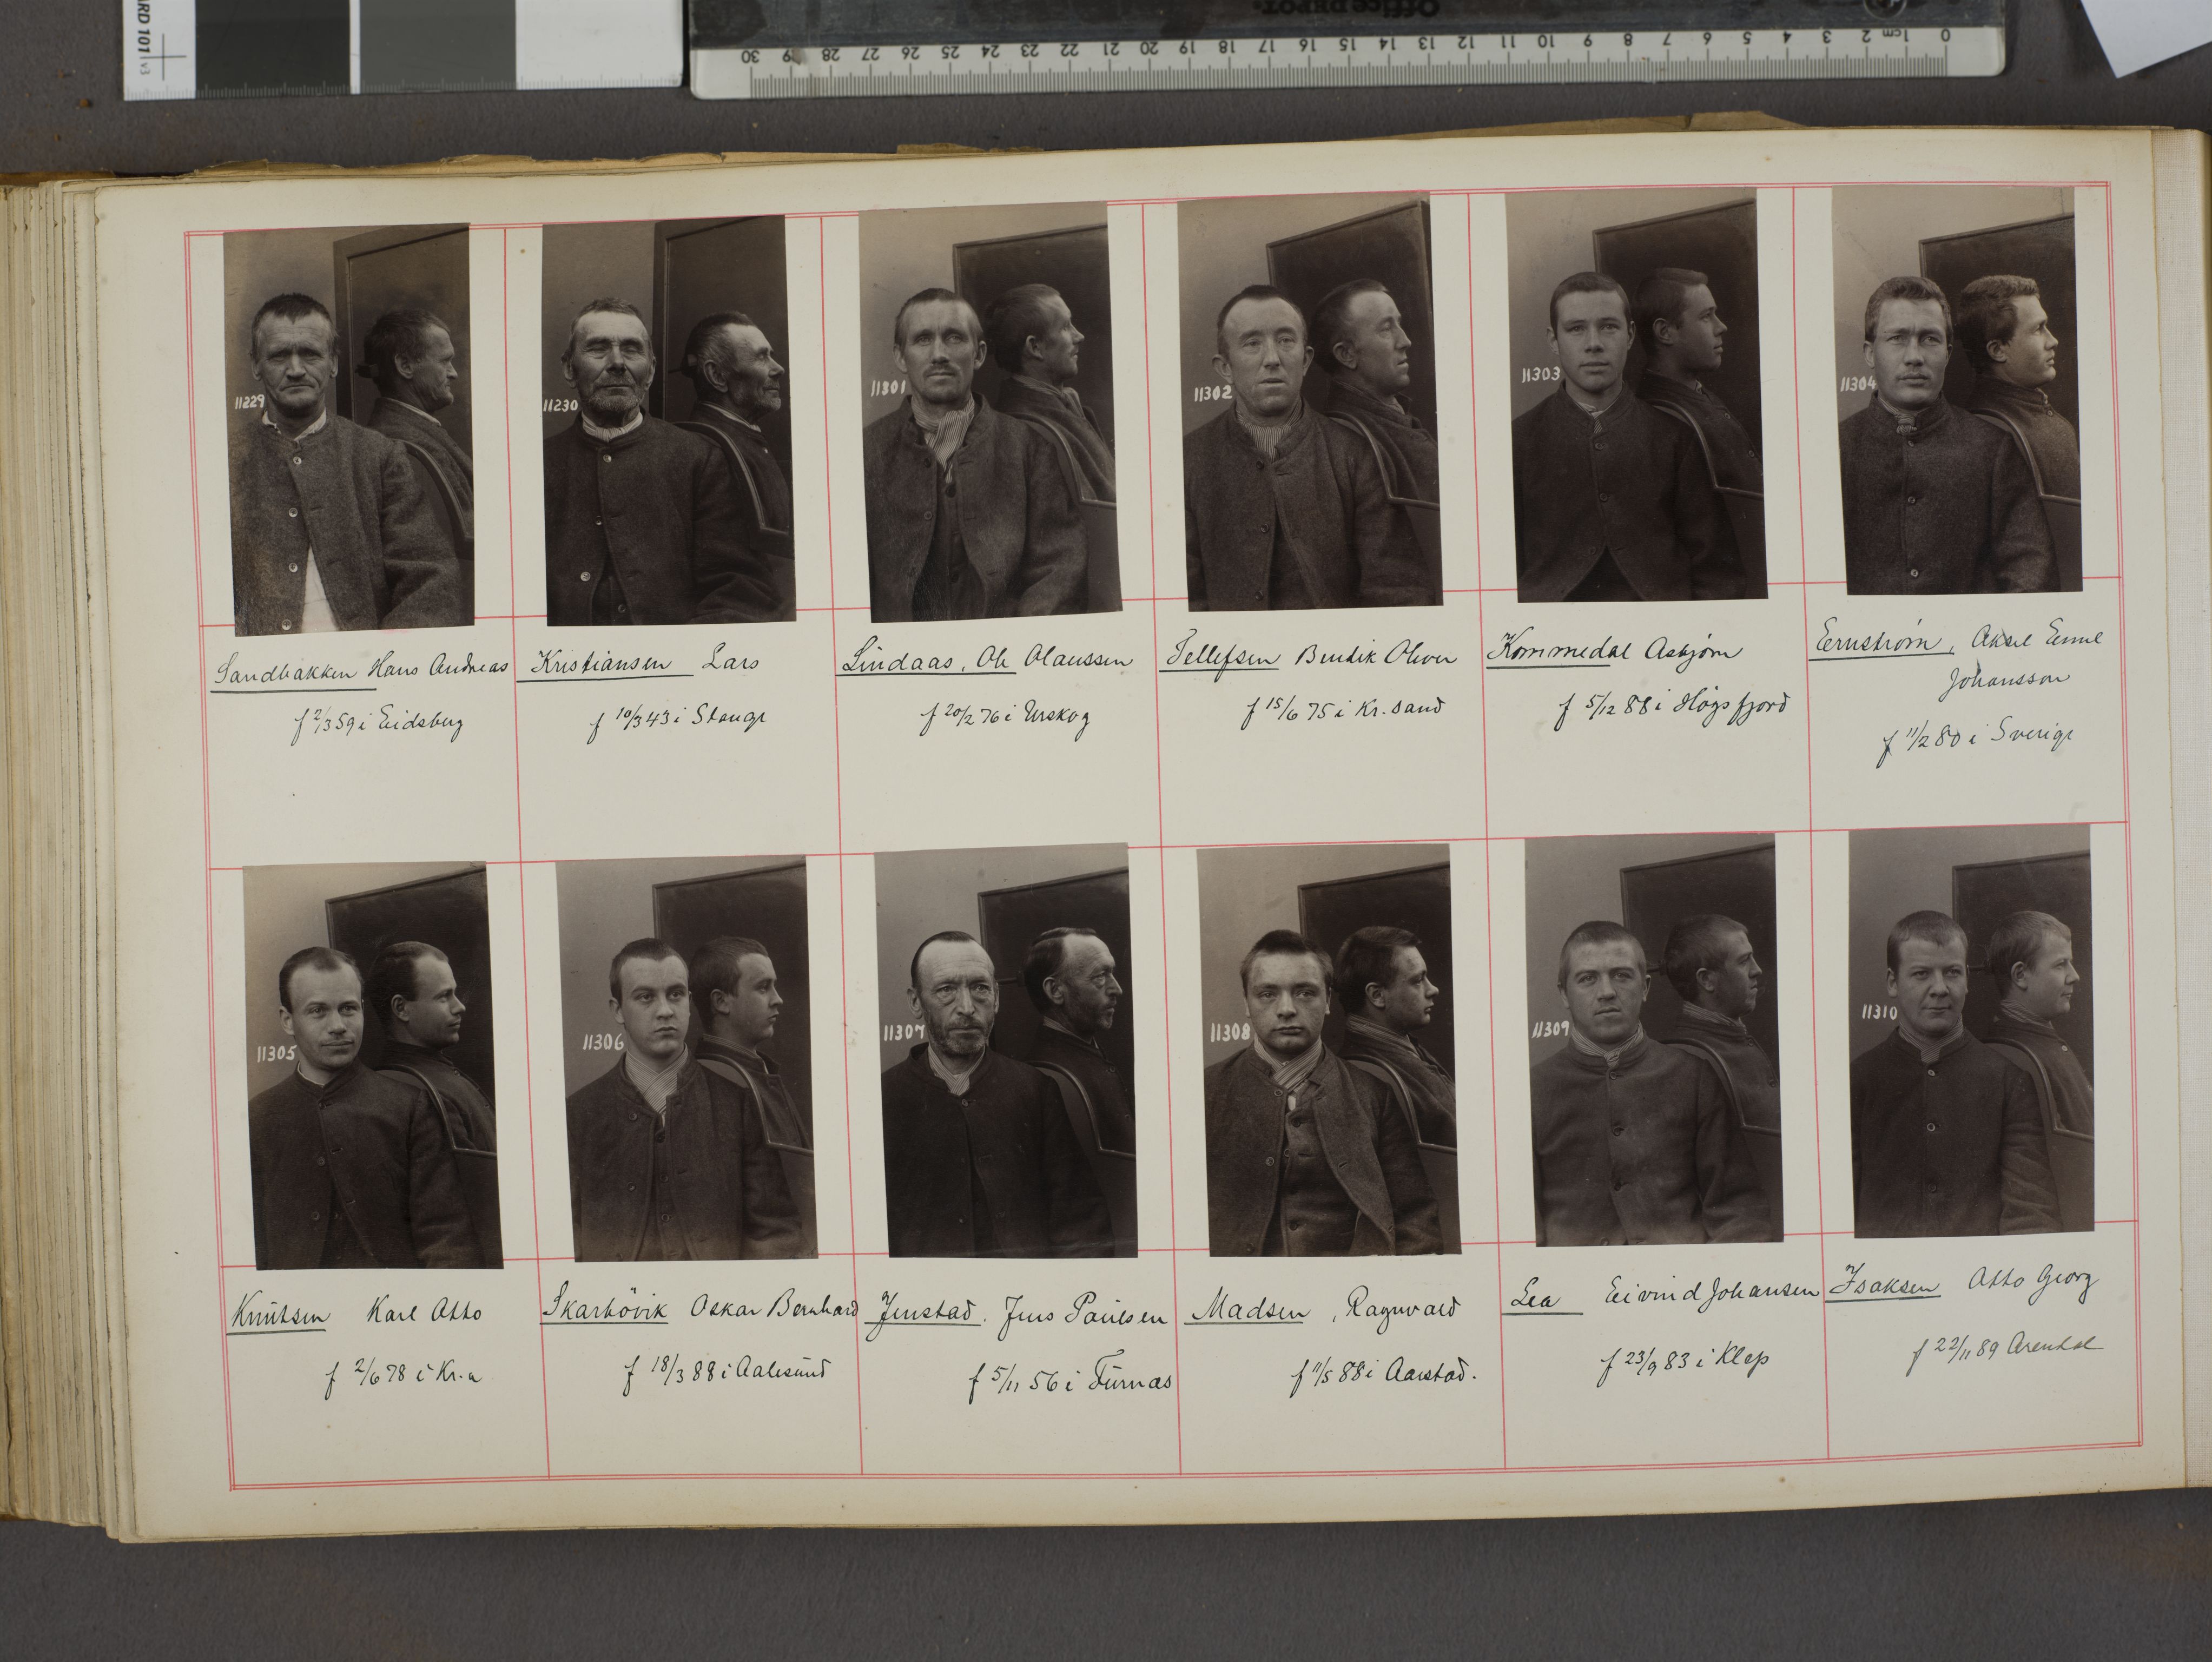 ARD 101 v3
Office DEPOT
30 29 28 27 26 25 24 23 22 21 20 19 18 17 16 15 14 13 12 11 10 9 8 7 6 5 4 3 2 1cm 0
11229
11230
11301
11302
11303
11304
Sandbakken Hans Andreas
f 2/3 59 i Eidsberg
Kristiansen Lars
f 10/3 43 i Stange
Lindaas, Ole Olaussen
f 20/2 76 i Urskog
Tellefsen Bendik Oliver
f 15/6 75 i Kr.sand
Kommedal Asbjørn
f 5/12 88 i Høgsfjord
Eernstrøm, Aksel Emil
Johansson
f 11/2 80 i Sverige
11305
11306
11307
11308
11309
11310
Knutsen Karl Otto
f 2/6 78 i Kr.a
Skarbövik Oskar Bernhard
f 18/3 88 i Aalesund
Jenstad. Jens Paulsen
f 5/11 56 i Furnæs
Madsen, Ragnvald
f 11/5 88 i Aarstad.
Lea Eivind Johansen
f 23/9 83 i Klep
Isaksen Otto Georg
f 22/11 89 Arendal